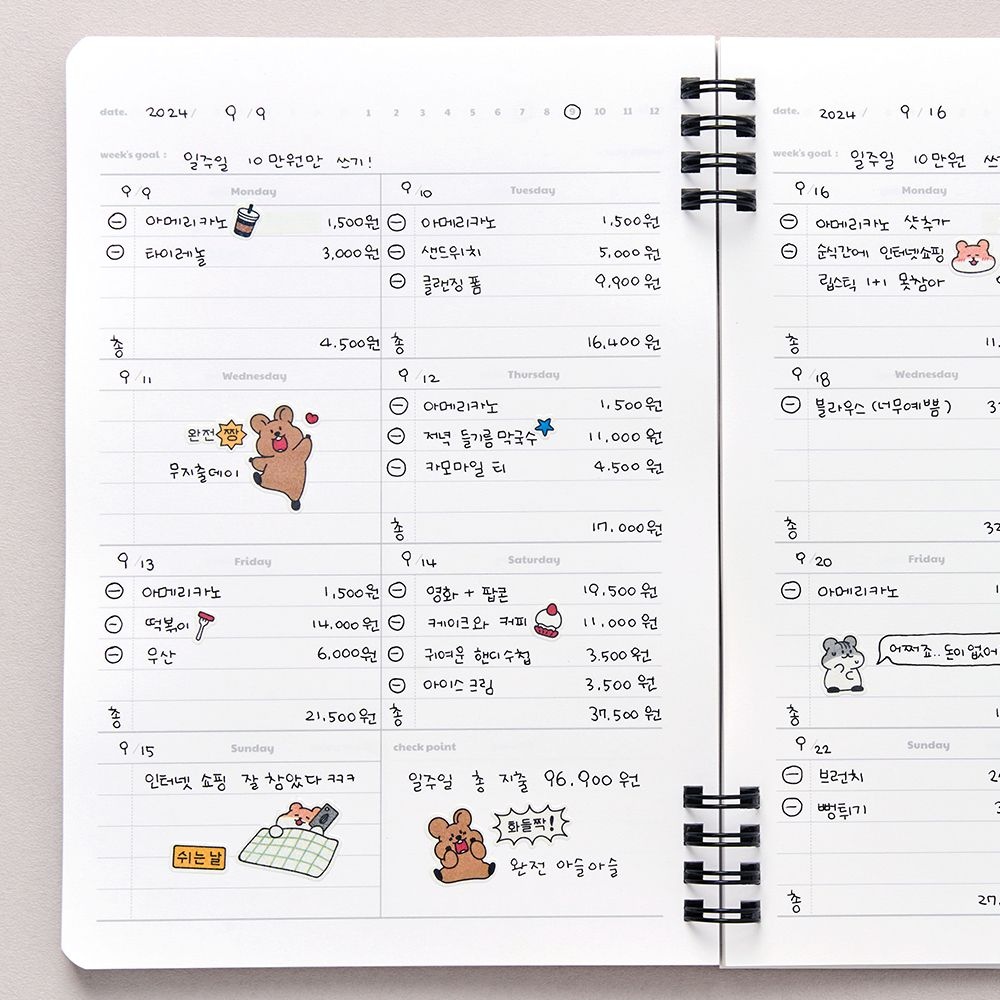 date. 2024/ 9/9 1 2 3 4 5 6 7 8 9 10 11 12
week's goal : 일주일 10만원만 쓰기!
9/9 Monday
㊀ 아메리카노 1,500원
㊀ 타이레놀 3,000원
총 4.500원
9/10 Tuesday
㊀ 아메리카노 1,500원
㊀ 샌드위치 5,000원
㊀ 클랜징 폼 9,900원
총 16,400원
9/11 Wednesday
완전 짱
무지출데이
9/12 Thursday
㊀ 아메리카노 1,500원
㊀ 저녁 들기름 막국수 11,000원
㊀ 카모마일 티 4.500원
총 17.000원
9/13 Friday
㊀ 아메리카노 1,500원
㊀ 떡볶이 14.000원
㊀ 우산 6,000원
총 21,500원
9/14 Saturday
㊀ 영화 + 팝콘 19,500원
㊀ 케이크와 커피 11,000원
㊀ 귀여운 핸디수첩 3.500원
㊀ 아이스크림 3,500원
총 37.500원
9/15 Sunday
인터넷 쇼핑 잘 참았다 ㅋㅋㅋ
쉬는날
check point
일주일 총 지출 96.900원
화들짝!
완전 아슬아슬
date. 2024 / 9/16
week's goal : 일주일 10만원
9/16 Monday
㊀ 아메리카노 샷추가
㊀ 순식간에 인터넷쇼핑
립스틱 1+1 못참아
총 11.
9/18 Wednesday
㊀ 블라우스 (너무예쁨)
총 32
9/20 Friday
㊀ 아메리카노
어쩌죠.. 돈이 없어
총
9/22 Sunday
㊀ 브런치
㊀ 뻥튀기
총 27.